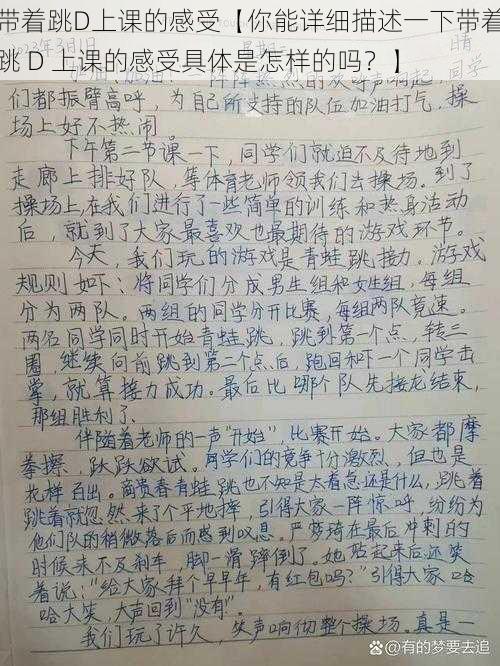 带着跳D上课的感受【你能详细描述一下带着
跳 D 上课的感受具体是怎样的吗？】
3年3月 晴
阵阵热烈的欢呼声响起，同学
们都振臂高呼，为自己所支持的队伍加油打气，操
场上好不热闹。
下午第二节课一下，同学们就迫不及待地到
走廊上排好队，等体育老师领我们去操场。到了
操场上，在我们进行了一些简单的训练和热身活动
后，就到了大家最喜欢也最期待的游戏环节。
今天，我们玩的游戏是青蛙跳接力。游戏
规则如下：将同学们分成男生组和女生组，每组
分为两队。两组的同学分开比赛，每组两队竞速。
两名同学同时开始青蛙跳，跳到第一个点，转三
圈，继续向前跳到第二个点后，跑回和下一个同学击
掌，就算接力成功。最后比哪个队先接龙结束，
那组胜利了。
伴随着老师的一声“开始”，比赛开始。大家都摩
拳擦，跃跃欲试。同学们的竞争十分激烈，但也是
花样百出。商贵春青蛙跳也不知是太着急还是什么，跳着
跳着就忽然来了个平地摔，引得大家一阵惊呼，纷纷为
他们队的稍微落后而感到叹息。严梦琦在最后冲刺的
时候来不及刹车，脚一滑蹿倒了。她站起来后还笑
着说：“给大家拜个早年，有红包吗？”引得大家哈
哈大笑，大声回到“没有”。
我们玩了许久，笑声响彻整个操场。真是一
@有的梦要去追